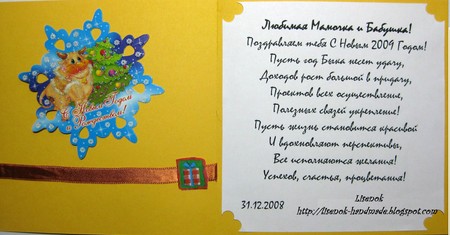 С Новым Годом
и Рождеством!
Любимая Мамочка и Бабушка!
Поздравляем тебя С Новым 2009 Годом!
Пусть год Быка несет удачу,
Доходов рост большой в придачу,
Проектов всех осуществление,
Полезных связей укрепление!
Пусть жизнь становится красивой
И вдохновляют перспективы,
Все исполняются желания!
Успехов, счастья, процветания!
Lisenok
31.12.2008
http://lisenok-handmade.blogspot.com/